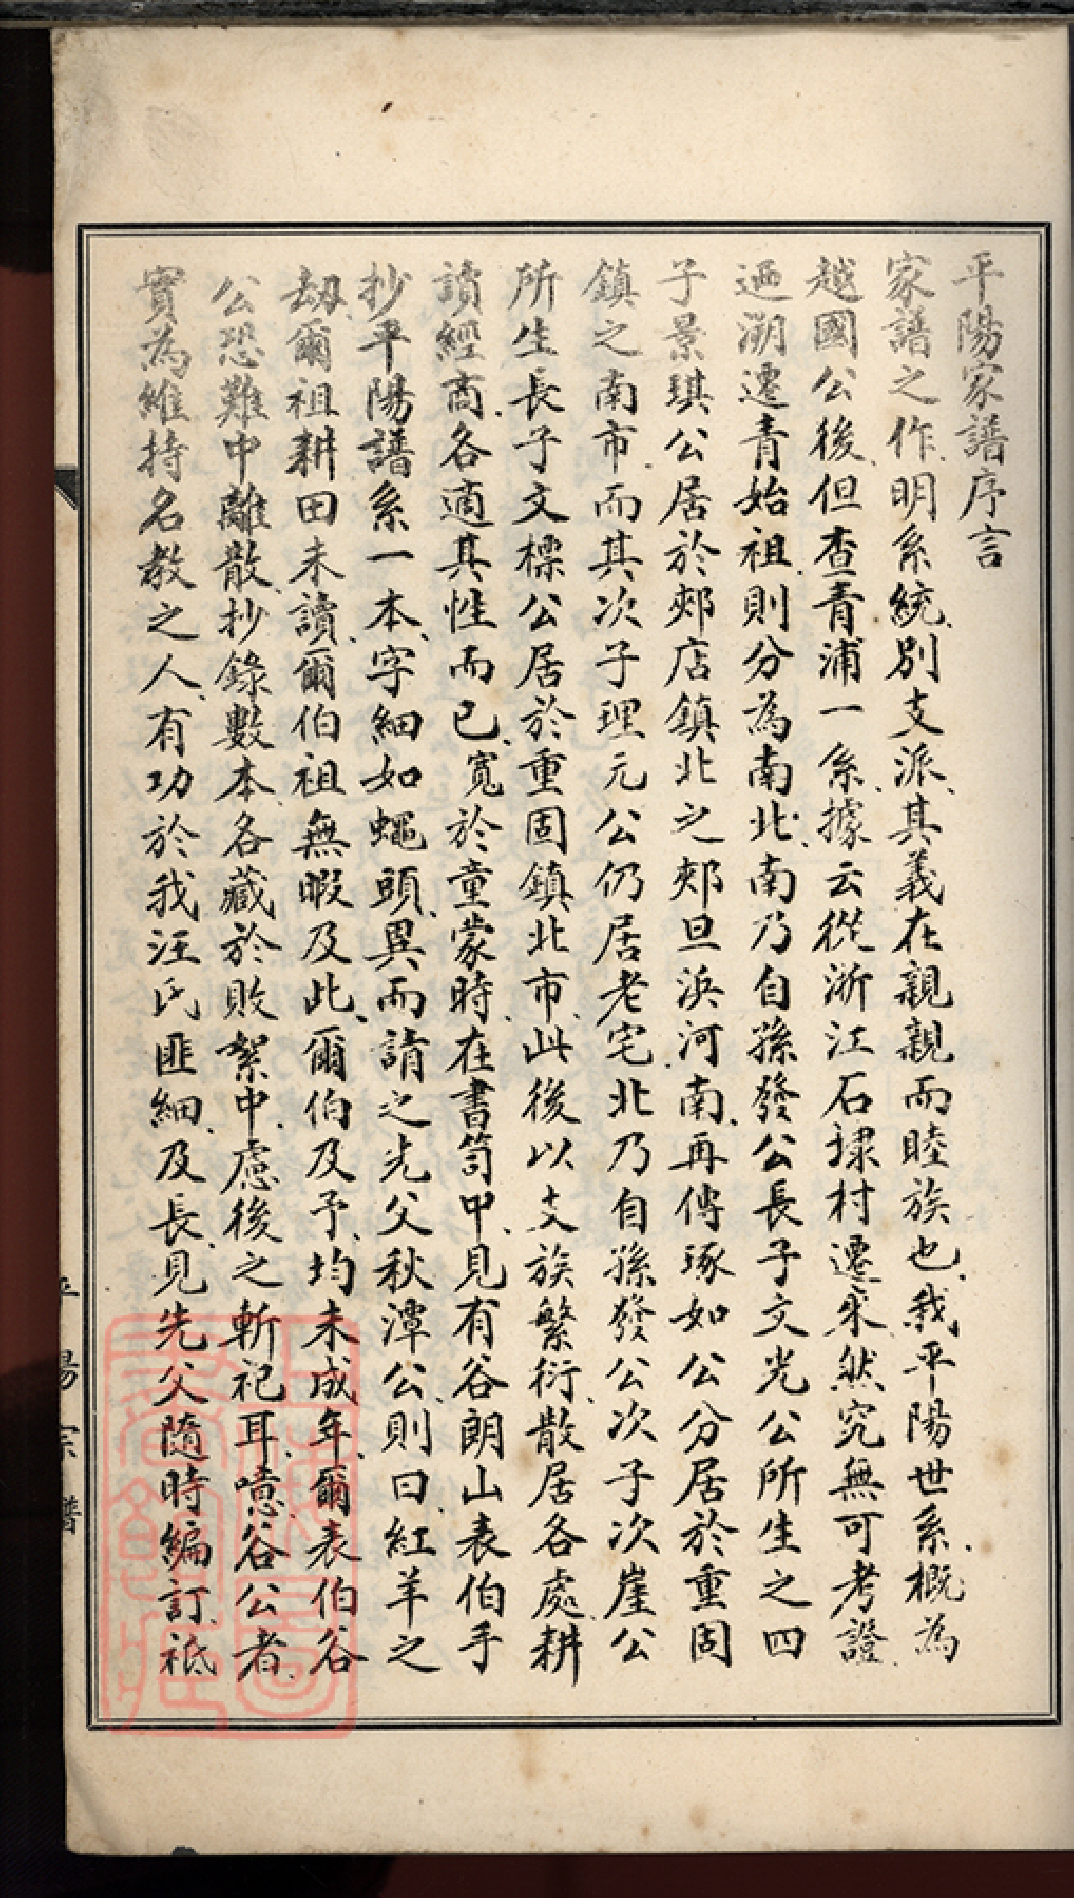 平陽家譜序言
家譜之作、明系統、別支派、其義在親親而睦族也、我平陽世系、概為
越國公後、但查青浦一系、據云從浙江石埭村遷來、然究無可考證、
迺溯遷青始祖、則分為南北、南乃自孫發公長子文光公所生之四
子景琪公居於郟店鎮北之郟旦浜河南、再傳琢如公分居於重固
鎮之南市、而其次子理元公仍居老宅、北乃自孫發公次子次崖公
所生、長子文標公居於重固鎮北市、此後以支族繁衍、散居各處、耕
讀經商、各適其性而已、寬於童蒙時、在書笥中、見有谷朗山表伯手
抄平陽譜系一本、字細如蠅頭、異而請之先父秋潭公、則曰、紅羊之
劫、爾祖耕田未讀、爾伯祖無暇及此、爾伯及予、均未成年、爾表伯谷
公恐難中離散、抄錄數本、各藏於敗絮中、慮後之斬祀耳、噫、谷公者、
實為維持名教之人、有功於我汪氏匪細、及長、見先父隨時編訂、祇
平陽宗譜